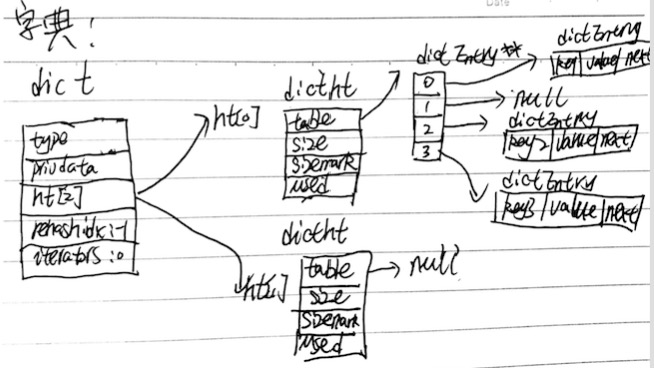 字典：
dict
type
privdata
ht[2]
rehashidx:-1
iterators:0
ht[0]
dictht
table
size
sizemark
used
dictEntry**
0
1
2
3
dictEntry
key value next
null
dictEntry
key2 value next
dictEntry
key3 value next
ht[1]
dictht
table
size
sizemark
used
null
Date